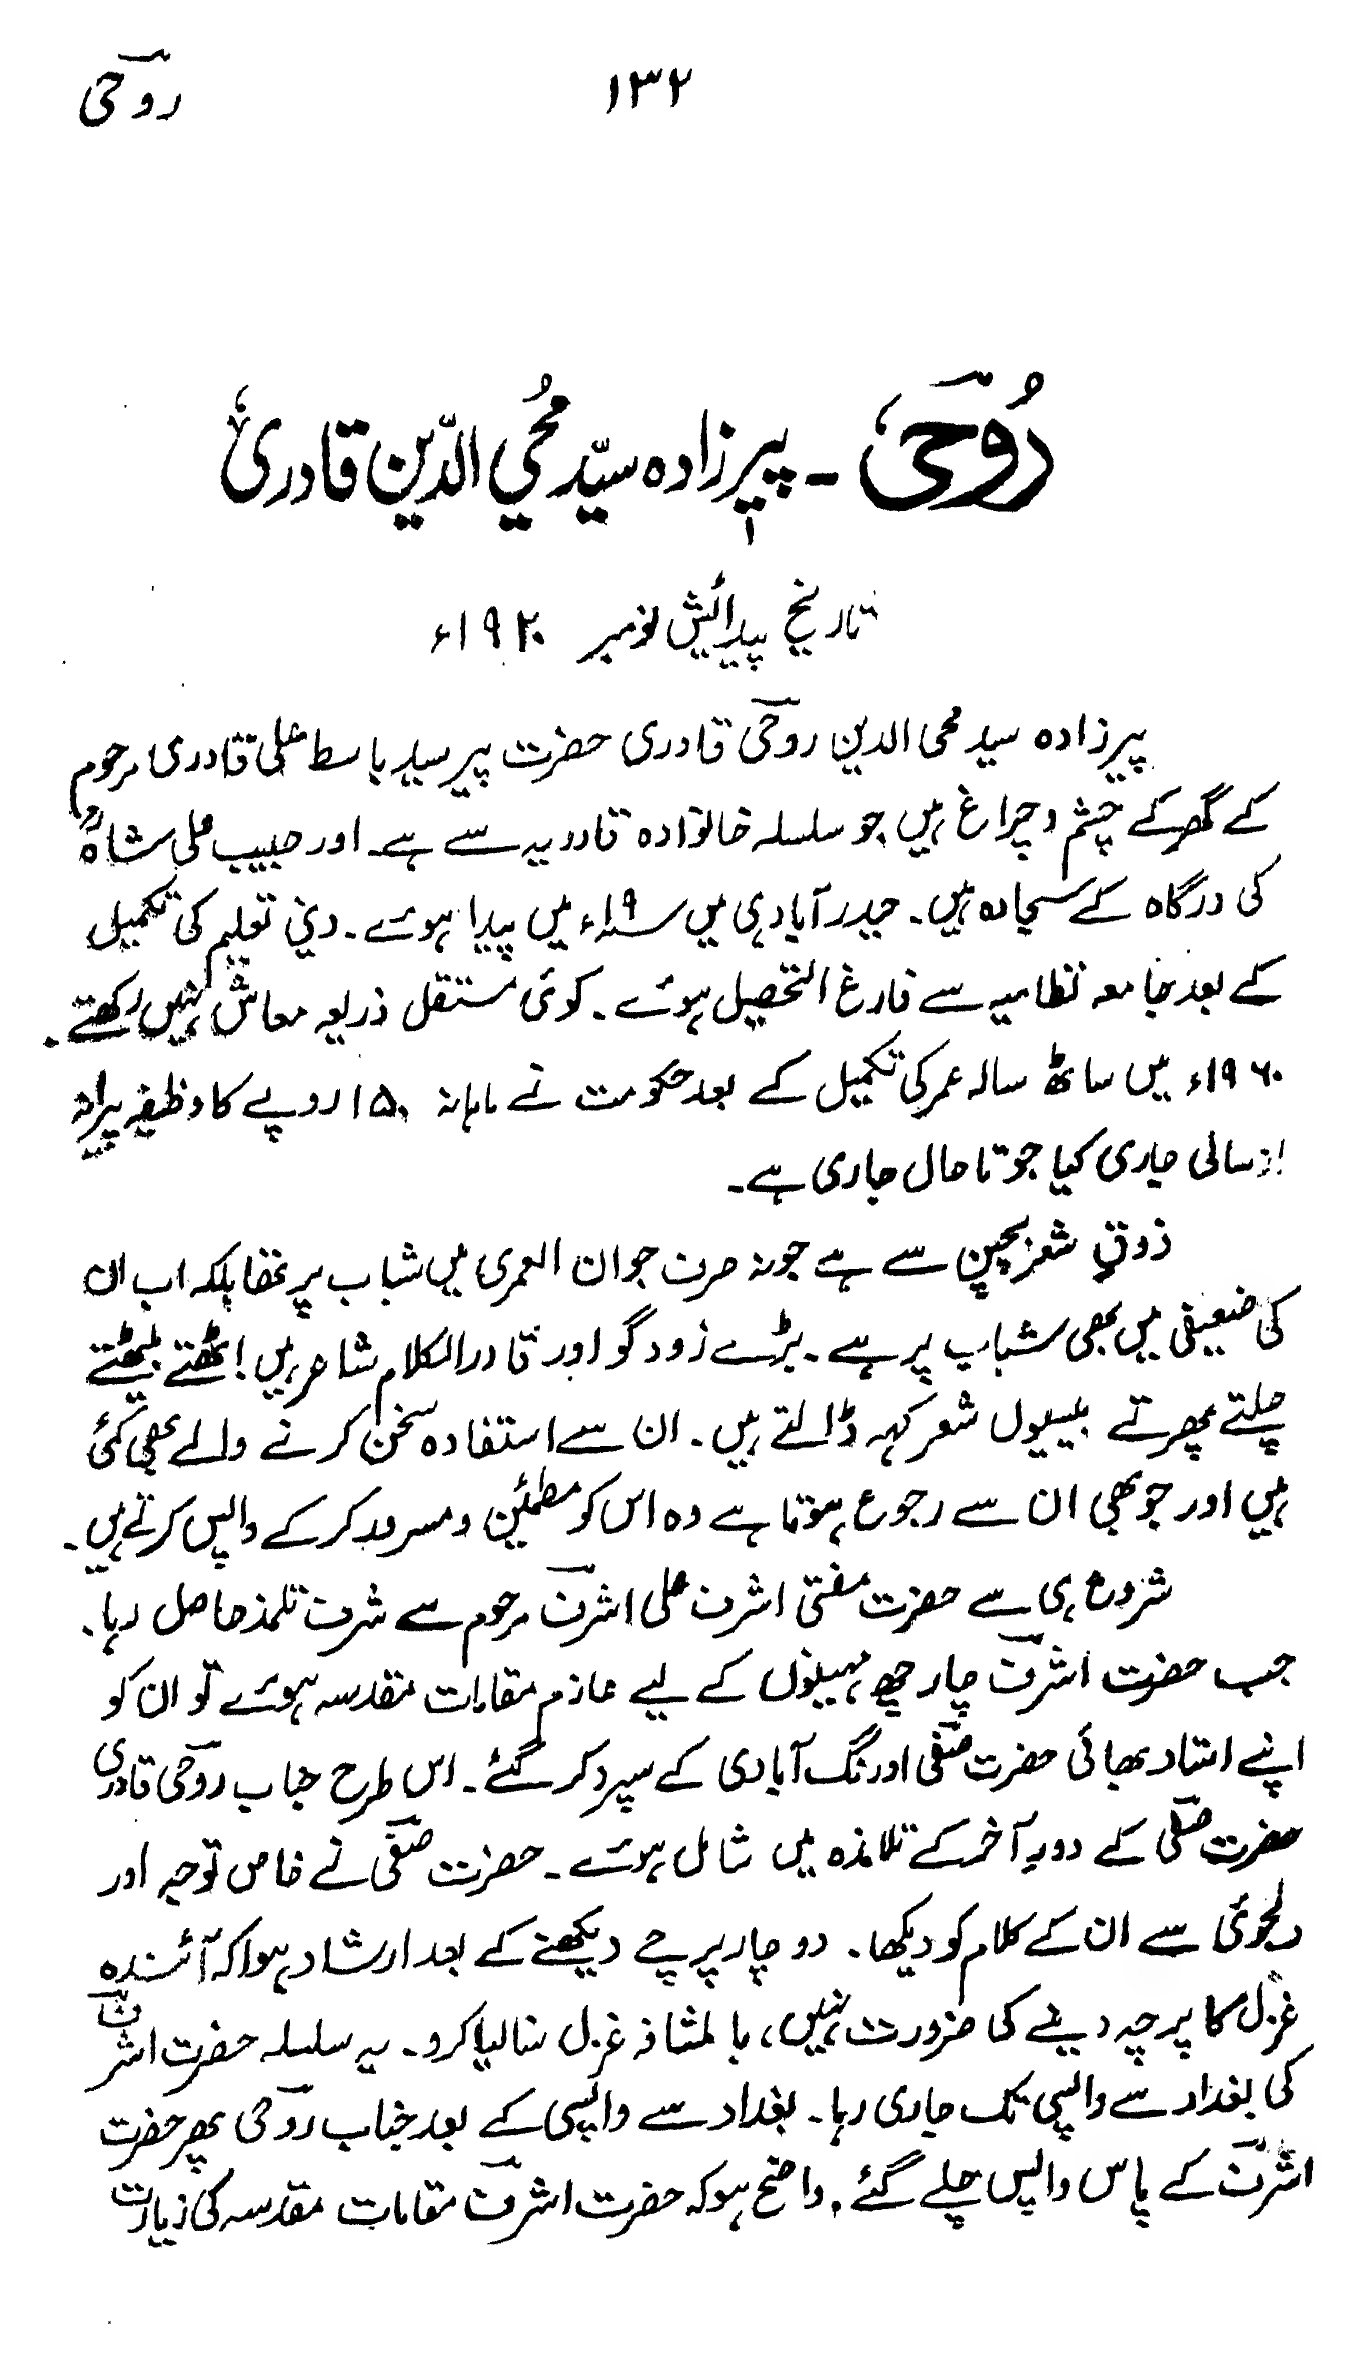 روحی ۱۳۲
رُوحی - پیرزادہ سیّد مُحی الدّین قادری
تاریخ پیدائش نومبر ۱۹۲۰ء
پیرزادہ سید محی الدین روحی قادری حضرت پیر سید باسط علی قادری مرحوم
کے گھر کے چشم و چراغ ہیں جو سلسلہ خانوادہ قادریہ سے ہے۔ اور حبیب علی شاہؒ
کی درگاہ کے سجادہ ہیں۔ حیدرآباد ہی میں میں پیدا ہوئے۔ دینی تعلیم کی تکمیل
کے بعد جامعہ نظامیہ سے فارغ التحصیل ہوئے۔ کوئی مستقل ذریعہ معاش نہیں رکھتے۔
۱۹۶۰ء میں ساٹھ سالہ عمر کی تکمیل کے بعد حکومت نے ماہانہ ۱۵۰ روپے کا وظیفہ پیرانہ
سالی جاری کیا جو تا حال جاری ہے۔
ذوقِ شعر بچپن سے ہے جو نہ صرف جوان العمری میں شباب پر تھا بلکہ اب ان
کی ضعیفی میں بھی شباب پر ہے۔ بڑے زود گو اور قادر الکلام شاعر ہیں! اٹھتے بیٹھتے
چلتے پھرتے بیسیوں شعر کہہ ڈالتے ہیں۔ ان سے استفادہ سخن کرنے والے بھی کئی
ہیں اور جو بھی ان سے رجوع ہوتا ہے وہ اس کو مطمئن و مسرور کر کے واپس کرتے ہیں۔
شروع ہی سے حضرت مفتی اشرف علی اشرفؔ مرحوم سے شرف تلمذ حاصل رہا۔
جب حضرت اشرفؔ چار چھ مہینوں کے لیے عازم مقامات مقدسہ ہوئے تو ان کو
اپنے استاد بھائی حضرت صفیؔ اورنگ آبادی کے سپرد کر گئے۔ اس طرح جناب روحیؔ قادری
حضرت صفیؔ کے دورِ آخر کے تلامذہ میں شامل ہوئے۔ حضرت صفیؔ نے خاص توجہ اور
دلجوئی سے ان کے کلام کو دیکھا۔ دو چار پرچے دیکھنے کے بعد ارشاد ہوا کہ آئندہ
غزل کا پرچہ دینے کی ضرورت نہیں، بالمشافہ غزل سنا لیا کرو۔ یہ سلسلہ حضرت اشرفؔ
کی بغداد سے واپسی تک جاری رہا۔ بغداد سے واپسی کے بعد جناب روحیؔ پھر حضرت
اشرفؔ کے پاس واپس چلے گئے۔ واضح ہو کہ حضرت اشرفؔ مقامات مقدسہ کی زیارت